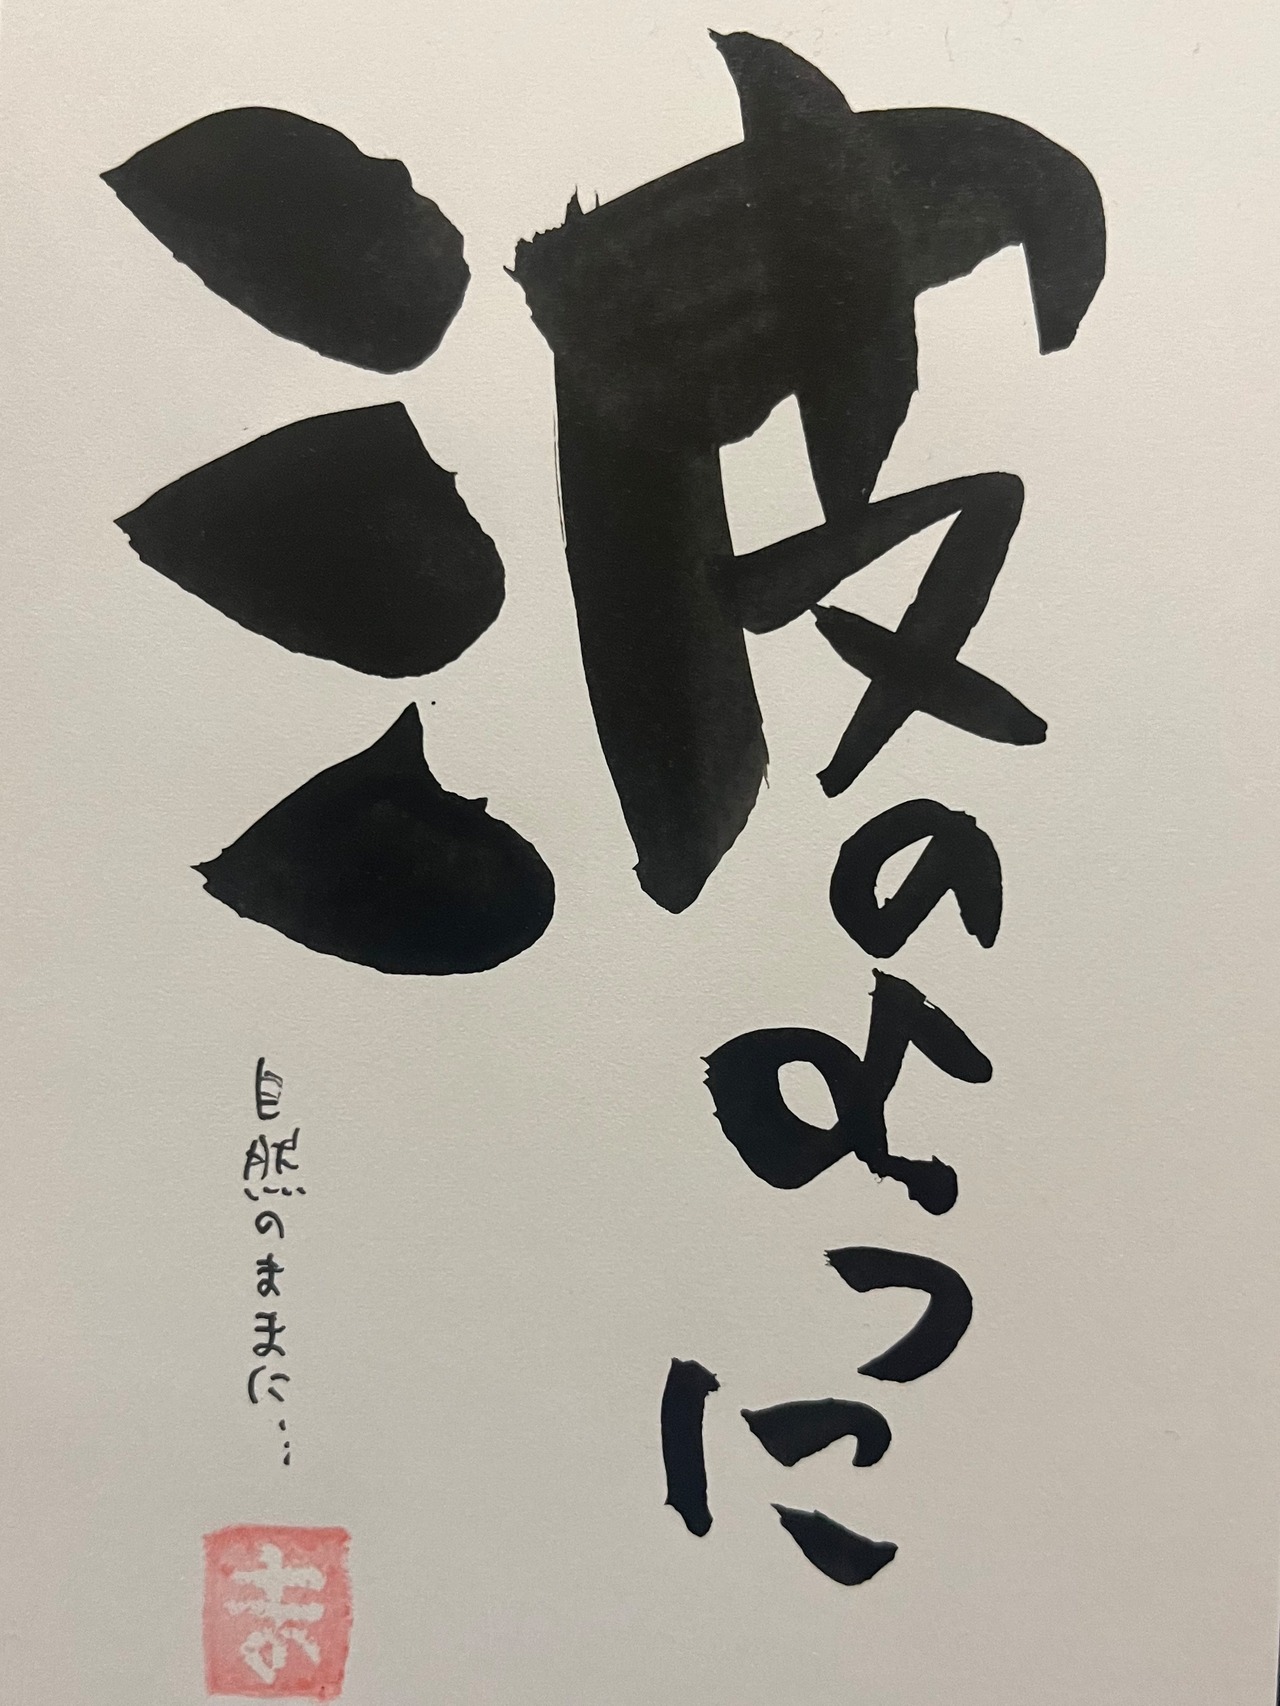 波のように
自然のままに…